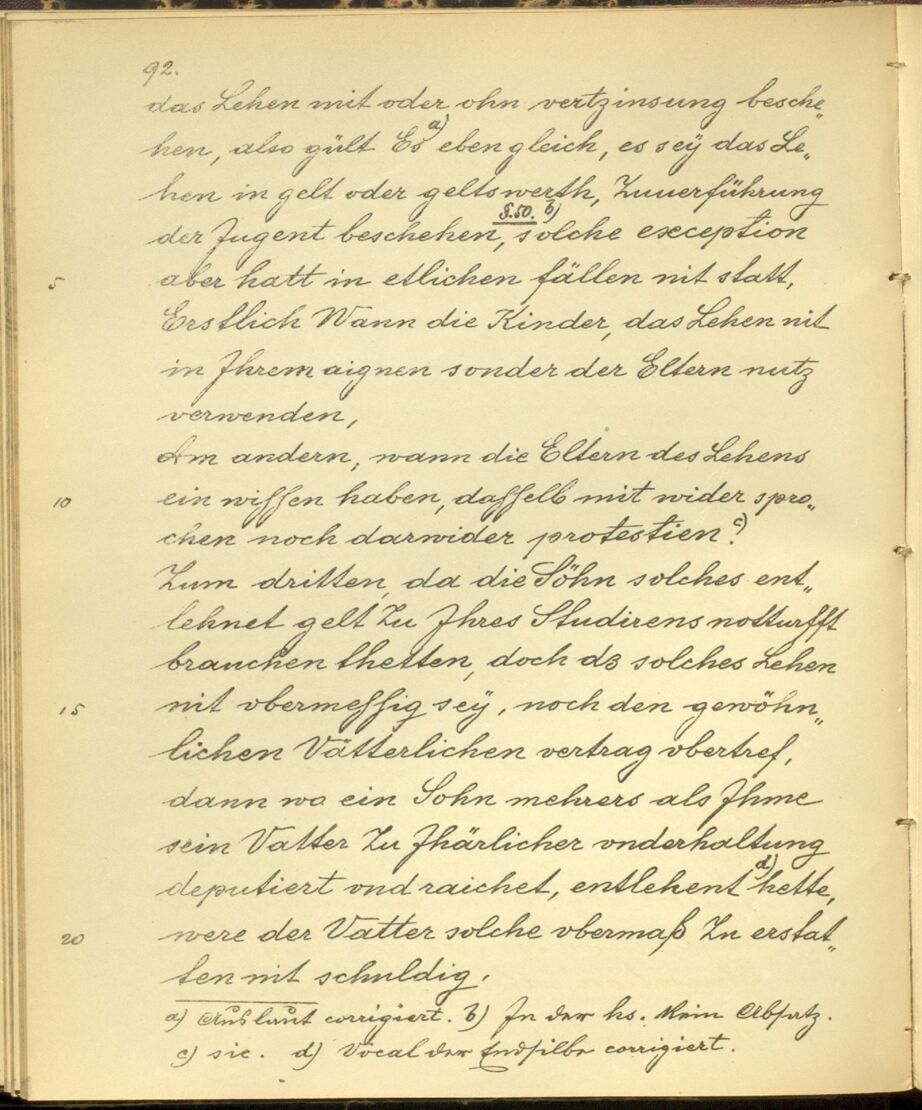 92.
das Lehen mit oder ohn vertzinsung besche„
hen, also gült Es a) eben gleich, es seÿ das Le„
hen in gelt oder geltswerth, Zuuerführung
der Jugent beschehen, §.50. b) solche exception
5 aber hatt in etlichen fällen nit statt,
Erstlich Wann die Kinder, das Lehen nit
in Ihrem aignen sonder der Eltern nutz
verwenden,
Am andern, wann die Eltern des Lehens
10 ein wissen haben, dasselb mit wider spro„
chen noch darwider protestien. c)
Zum dritten, da die Söhn solches ent„
lehnet gelt Zu Ihres Studirens notturfft
brauchen thetten, doch dz solches Lehen
15 nit vbermessig seÿ, noch den gewöhn„
lichen Vätterlichen vertrag vbertref,
dann wo ein Sohn mehrers als Ihme
sein Vatter Zu Jhärlicher vnderhaltung
deputiert vnd raichet, entlehent d) hette,
20 were der Vatter solche vbermaß Zu erstat„
ten nit schuldig.
a) Auslaut corrigiert. b) In der hs. kein Absatz.
c) sic. d) Vocal der Endsilbe corrigiert.